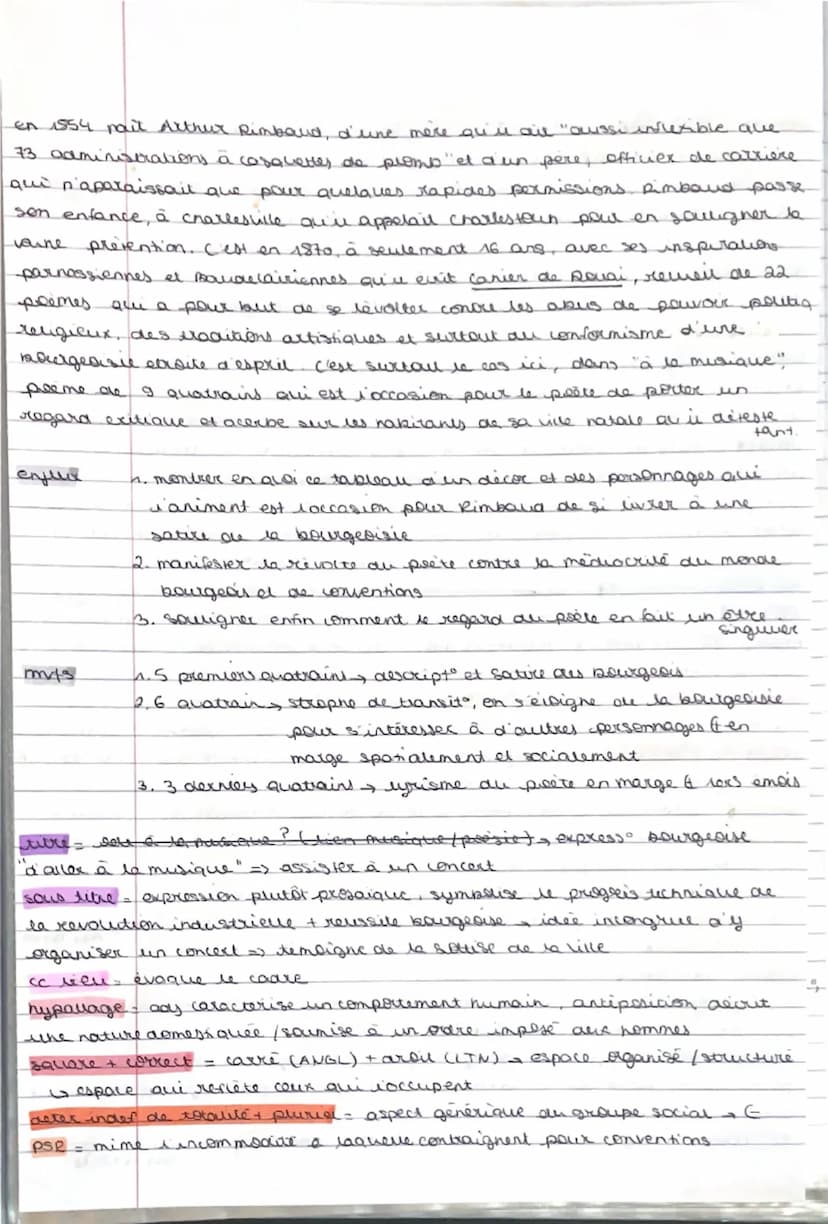 en 1554 naît Arthur Rimbaud, d'une mère qu'il dit "aussi inflexible que
73 administrations à casquettes de plomb" et d'un père, officier de carrière
qui n'aparaissait que pour quelques rapides permissions. Rimbaud passe
son enfance, à Charlesville qu'il appelait Charlestown pour en souligner la
vaine prétention. C'est en 1870, à seulement 16 ans, avec ses inspirations
parnassiennes et Baudelairiennes qu'il écrit Canier de Douai, recueil de 22
poèmes qui a pour but de se révolter contre les abus de pouvoir politiq
religieux, des traditions artistiques et surtout du conformisme d'une
bourgeoisie étroite d'esprit. C'est surtout le cas ici, dans "à la musique",
poème de 9 quatrains qui est l'occasion pour le poète de porter un
regard critique et acerbe sur les habitants de sa ville natale qu'il déteste
tant.
enjeux 1. montrer en quoi ce tableau d'un décor et des personnages qui
l'animent est l'occasion pour Rimbaud de si livrer à une
satire de la bourgeoisie
2. manifester la révolte du poète contre la médiocrité du monde
bourgeois et de conventions
3. souligner enfin comment le regard du poète en fait un être
singulier
mvts 1. 5 premiers quatrains → descript° et satire des bourgeois
2. 6 quatrain → strophe de transit°, on s'éloigne de la bourgeoisie
pour s'intéresser à d'aultres personnages en
marge spatialement et socialement
3. 3 derniers quatrains → lyrisme du poète en marge emois
titre = à la musique ? (lien musique/poésie) → express° bourgeoise
"d'aller à la musique" => assister à un concert
sous titre = expression plutôt prosaïque, symbolise le progrès technique de
la revolution industrielle + reussite bourgeoise → idée incongrue d'y
organiser un concert => temoigne de la sottise de la ville
cc lieu = évoque le cadre
hypallage = adj caractérise un comportement humain, antiposicion décrit
une nature domestiquée / soumise à un ordre imposé aux hommes
square + correct = carré (ANGL) + droit (LTN) → espace organisé / structuré
↳ espace qui reflète ceux qui l'occupent
deter indef de totalité + pluriel = aspect générique du groupe social →
PSR = mime l'incommodité a laquelle contraignent pour conventions